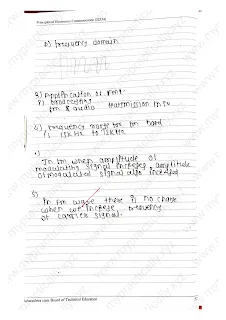 Principles of Electronic Communication (22334)
b) frequency domain
3) Application of Fm:-
1) broadcasting
fm & audio transmission in TV
4) frequency range for fm band
is 15KHz to 15KHz
In fm when amplitude of
modulating signal increses amplitude
of modulated signal also increses
5)
In fm wave there is no change
when we increse frequency
of carrier signal.
Maharashtra state Board of Technical Education